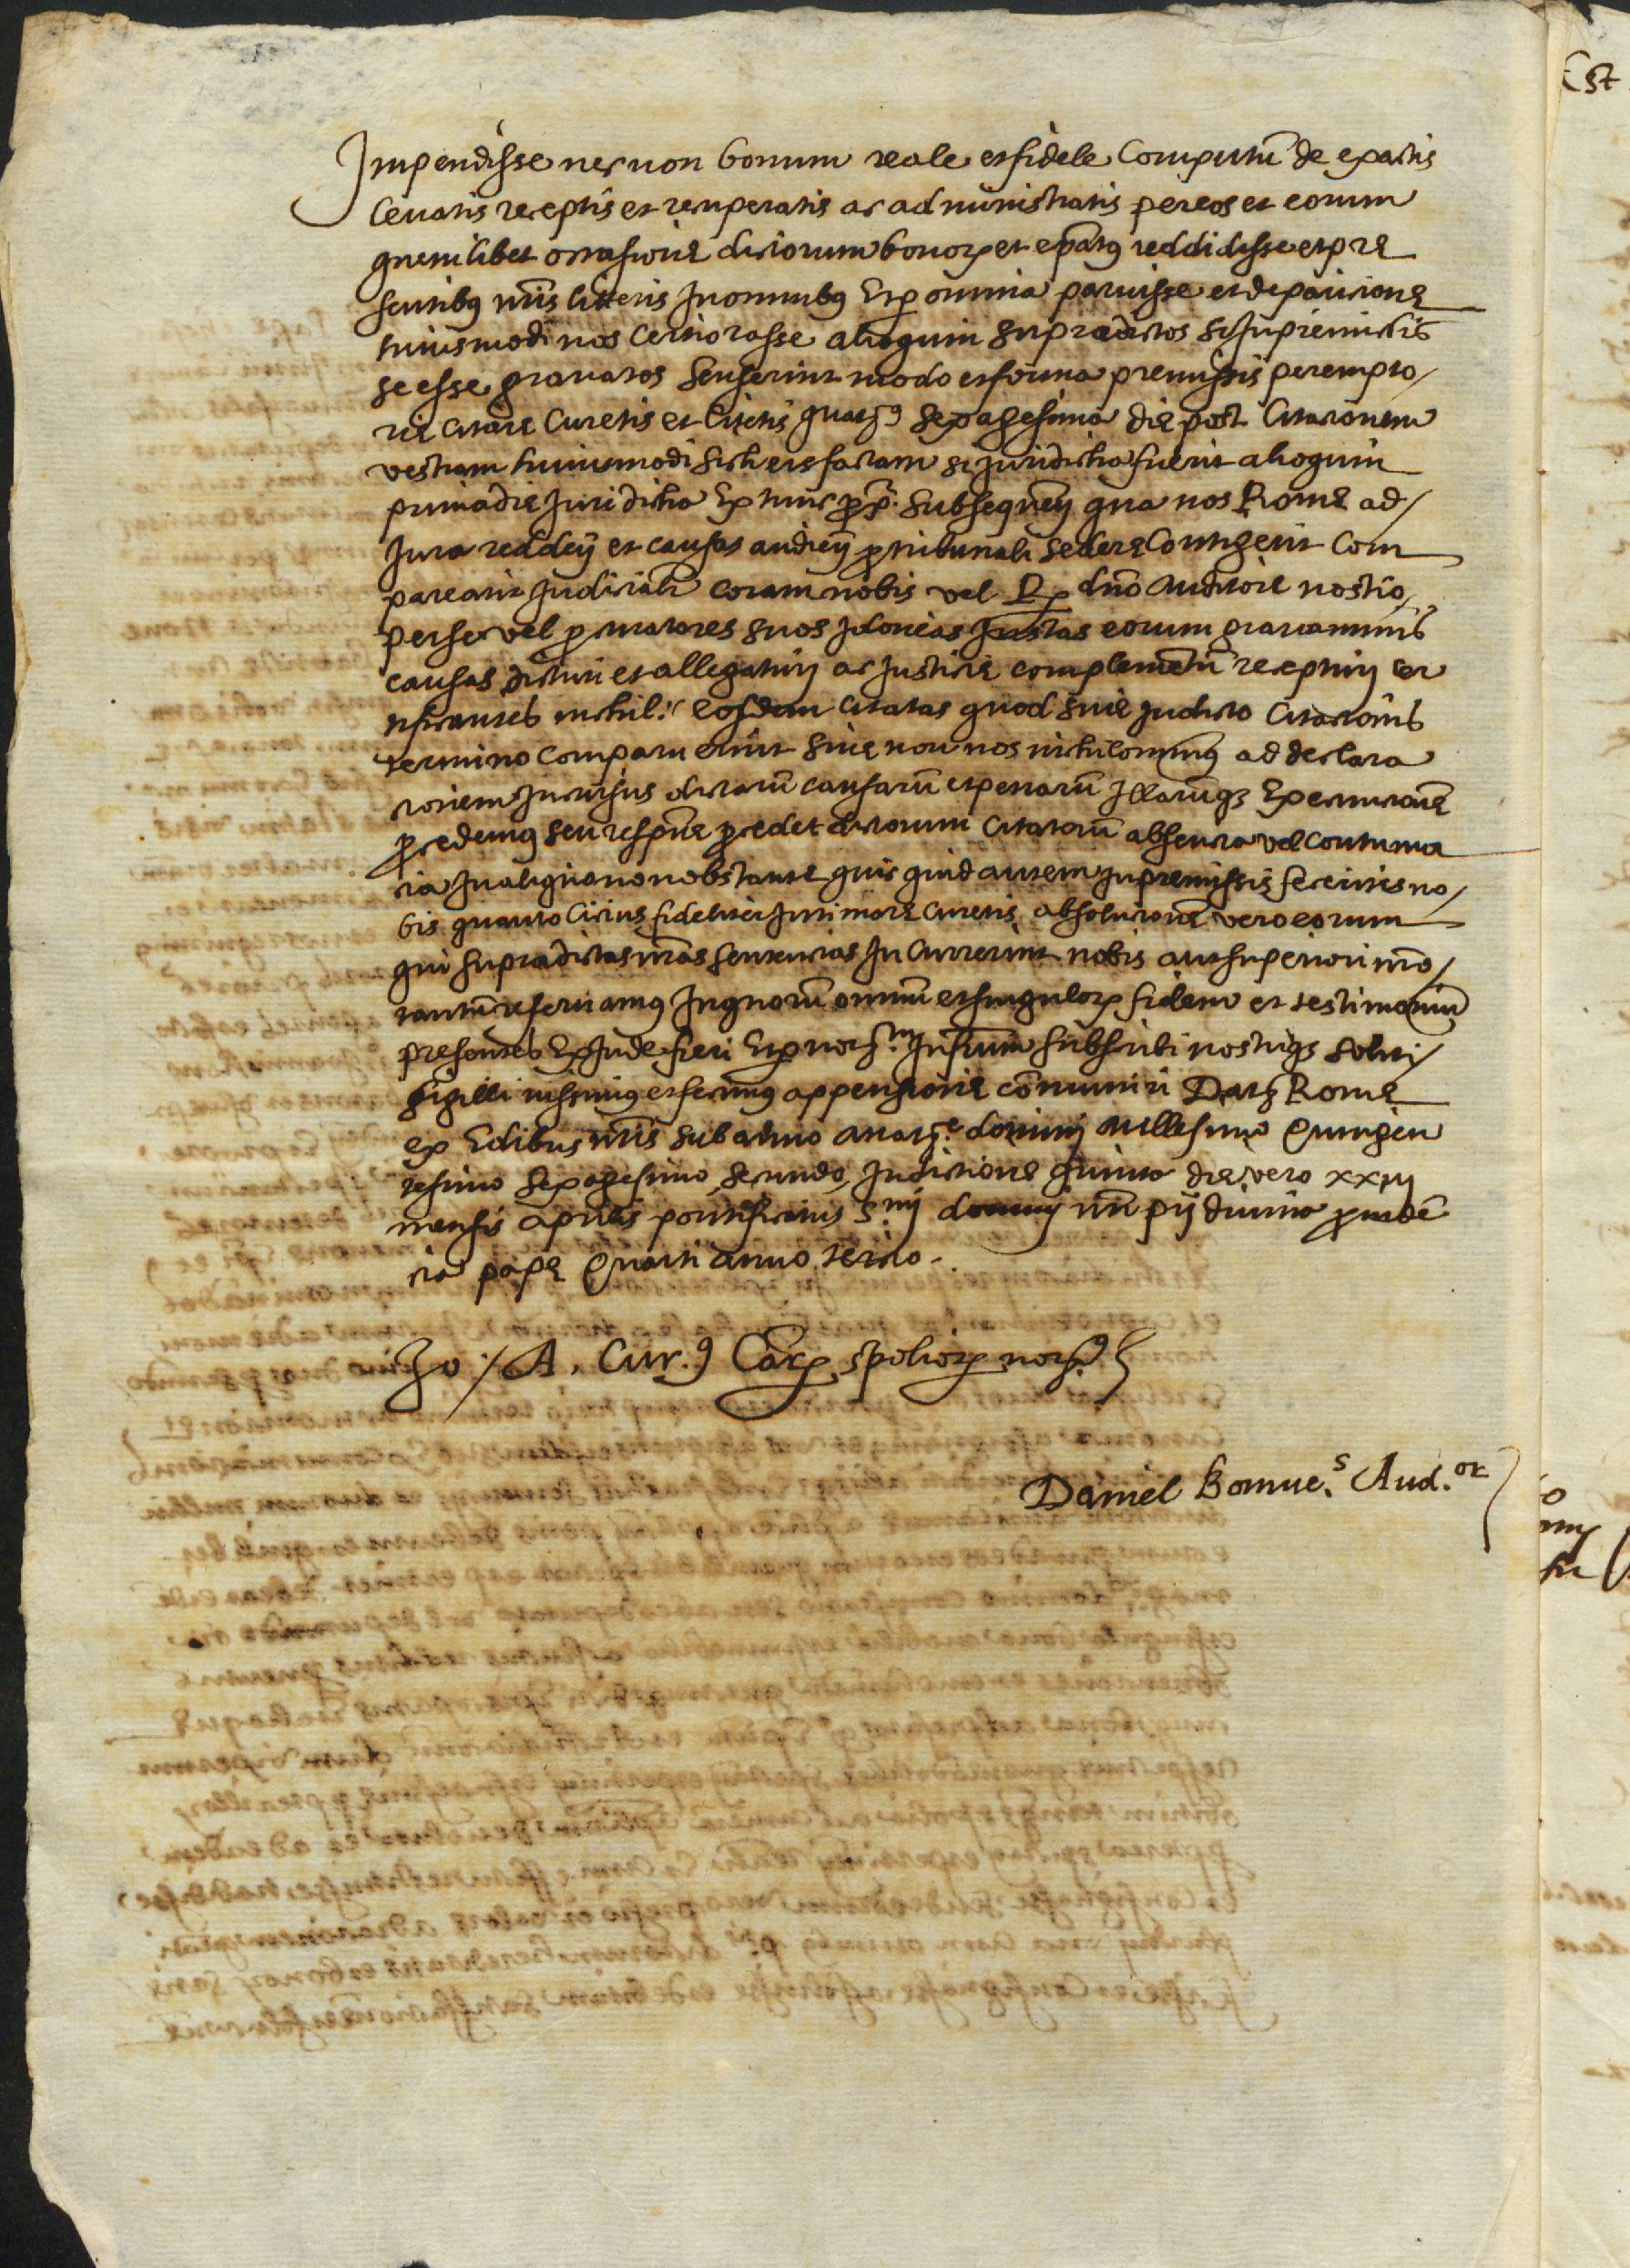 Impendisse necnon bonum reale et fidele Computũ de exactis
levatis receptis et recuperatis ac administratis per eos et eorum
quemlibet occasione dictorum bonorꝝ et ep̃atꝰ reddidisse et pre
sentibꝰ nr̃is litteris In omnibꝰ Et ꝑ omnia paruisse et de paricione
huiusmodi nos certiorasse alioquin supradictos si In premissis
se esse gravatos senserint modo et forma premissis perempto/
rie citare Curetis et Citetis quatꝰ sexagesima die post Citationem
vestram huiusmodi sicut eis factam si Juridica fuerit alioquin
prima die Juridica Ex tunc subsequeñ qua nos Rome ad/
Jura reddeñ et causas audieñ ꝓ tribunali sedere Contigerit Com
pareant Judicialr̃ coram nobis vel dño Auditore nostro/
per se vel ꝓcuratores suos Idoneos Justas eorum gravaminis
causas dicturi et allegaturi ac Justicie complementũ recepturi cer
tificantes nihil: eosdem citatos quod sive In dicto Citationis
termino comparuerint sive non nos nichilominꝰ ad declara
cionem Incursus dictarũ causarũ et penarũ Illarũqꝫ Executione
ꝓcedemꝰ seu ꝓcedet dictorum citatorũ absentia vel Contuma
cia In aliquo non obstante quicquid autem In premissis feceritis no/
bis quanto Citius fideliter Intimare Curetis absolucione vero eorum
qui supradictas nr̃as sentencias Incurrerint nobis aut superiori nr̃o/
tantũ reservamꝰ In quorũ omniũ et singulorꝝ fidem et testimoniũ
presentes Exinde fieri Et ꝑ not.m Infr̃um subscribi nostriqꝫ soliti/
sigilli iussimꝰ et fecimꝰ appensione cõmuniri Datꝫ Rome
ex Edibus nr̃is sub anno a nat.e dominj Millesimo Quingen
tesimo sexagesimo secundo Indictione quinta die vero xxiij
mensis aprilis pontificatus S.mi dominj nr̃i pij divina ꝓviden
cia pape Quarti anno tercio.
Jo: A. Cur.ꝰ Caꝝ spoliorꝝ not.ꝰ
Daniel Bonue.s Aud.or
Est